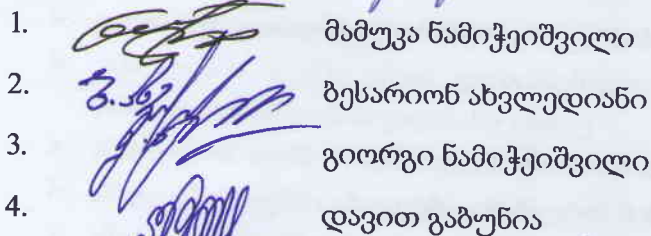 1. მამუკა ნამიჭეიშვილი
2. ბესარიონ ახვლედიანი
3. გიორგი ნამიჭეიშვილი
4. დავით გაბუნია